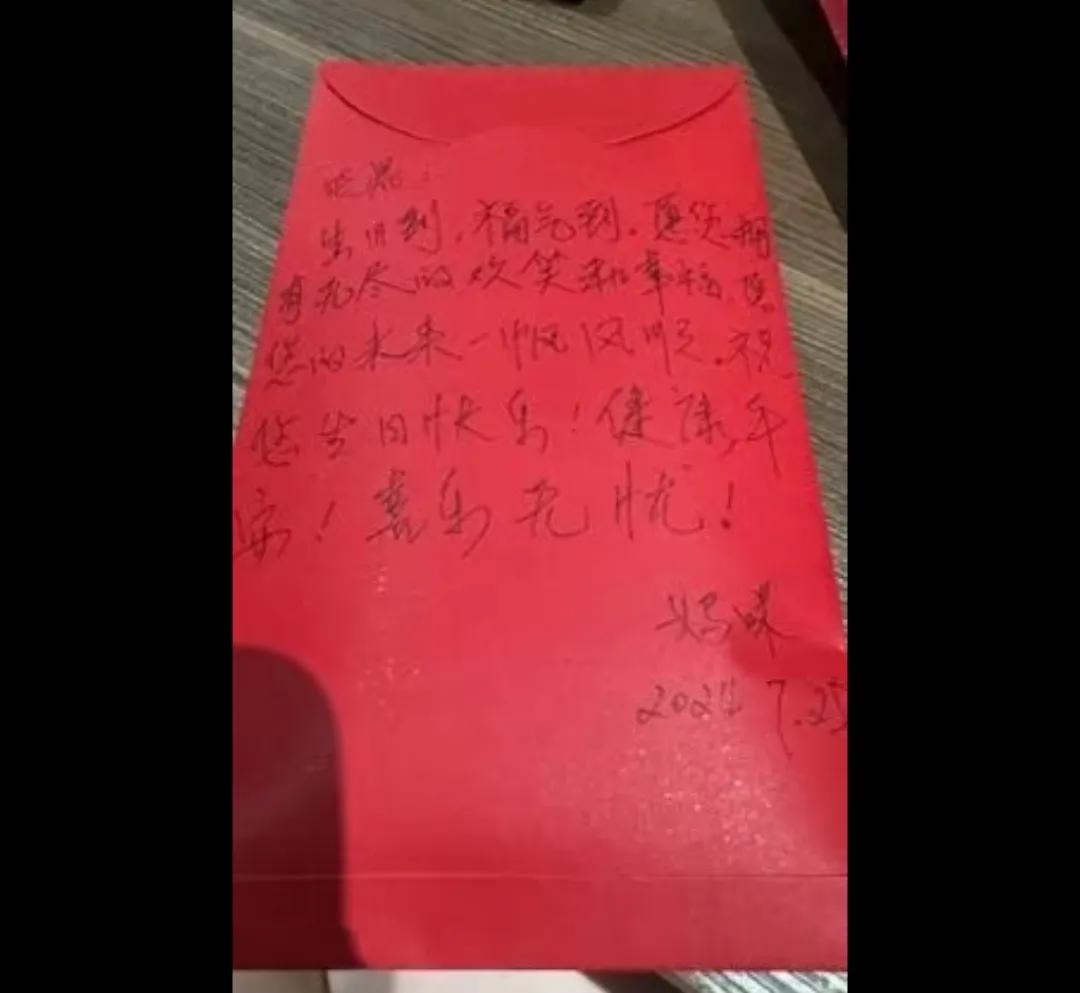 生日到，福气到，愿您拥
有无尽的欢笑和幸福，愿
您的未来一帆风顺。祝
您生日快乐！健康，平
安！喜乐无忧！
妈咪
2024 7.25